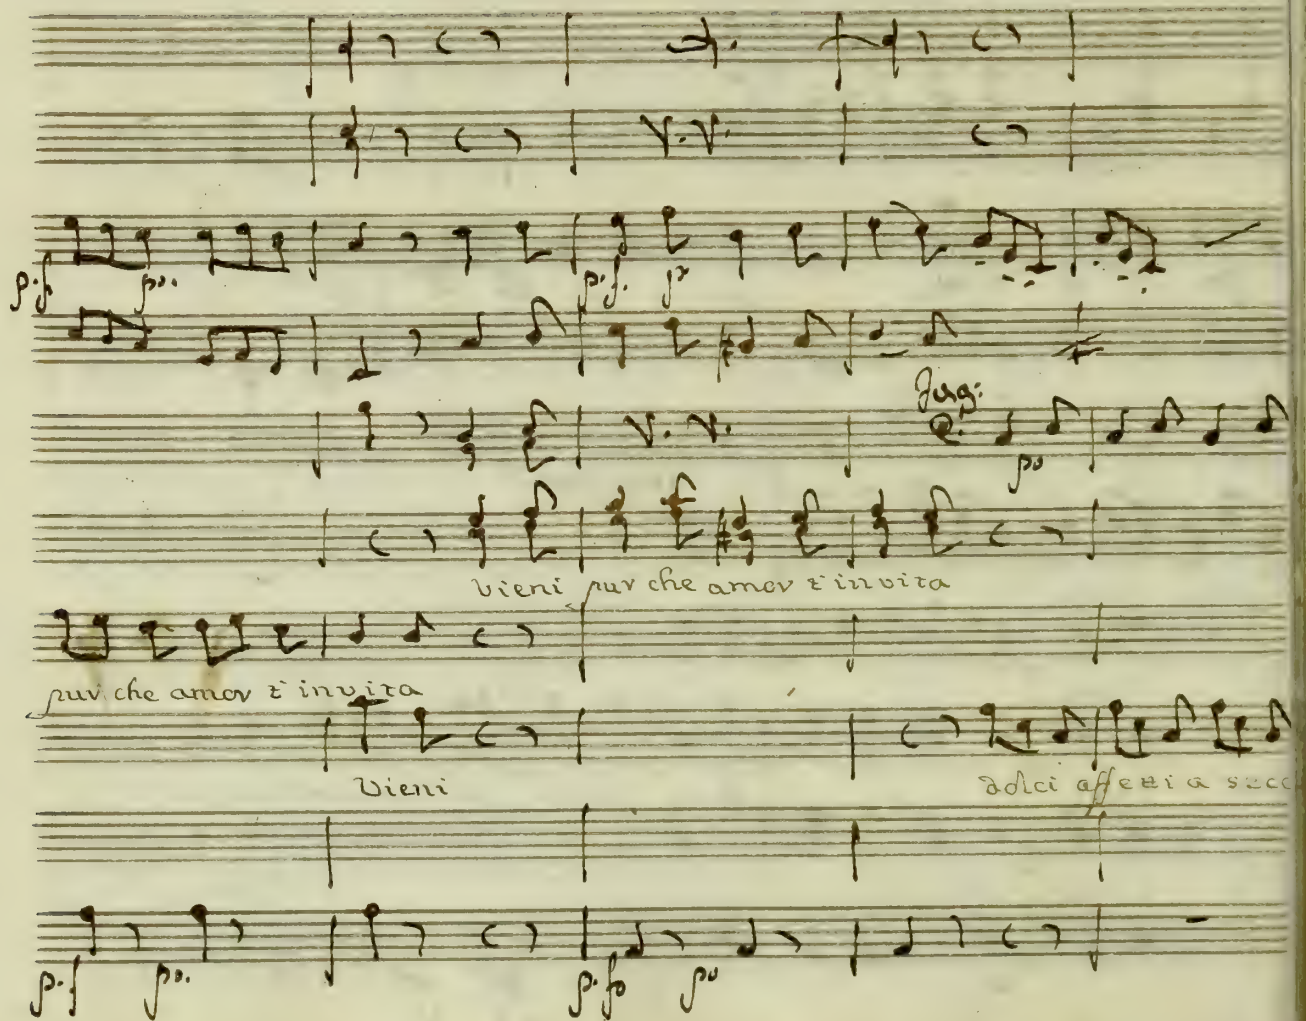 V. V.
p.f po. p.f. p
V. V. Fag:
po
vieni pur che amor t'invita
pur che amor t'invita
Vieni dolci affetti a
p.f po. p.fo po